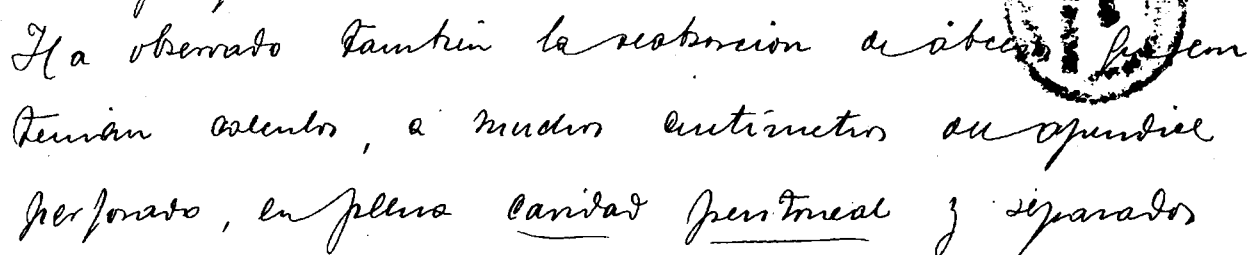 Ha observado también la reabsorcion de abcesos que con
tenian calculos, a muchos centímetros del apendice
perforado, en plena cavidad peritoneal y separados